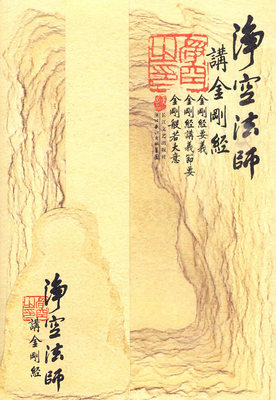 淨空法師
講金剛經
金剛經要義
金剛經講義節要
金剛般若大意
長江文藝出版社
淨空法師
講金剛經